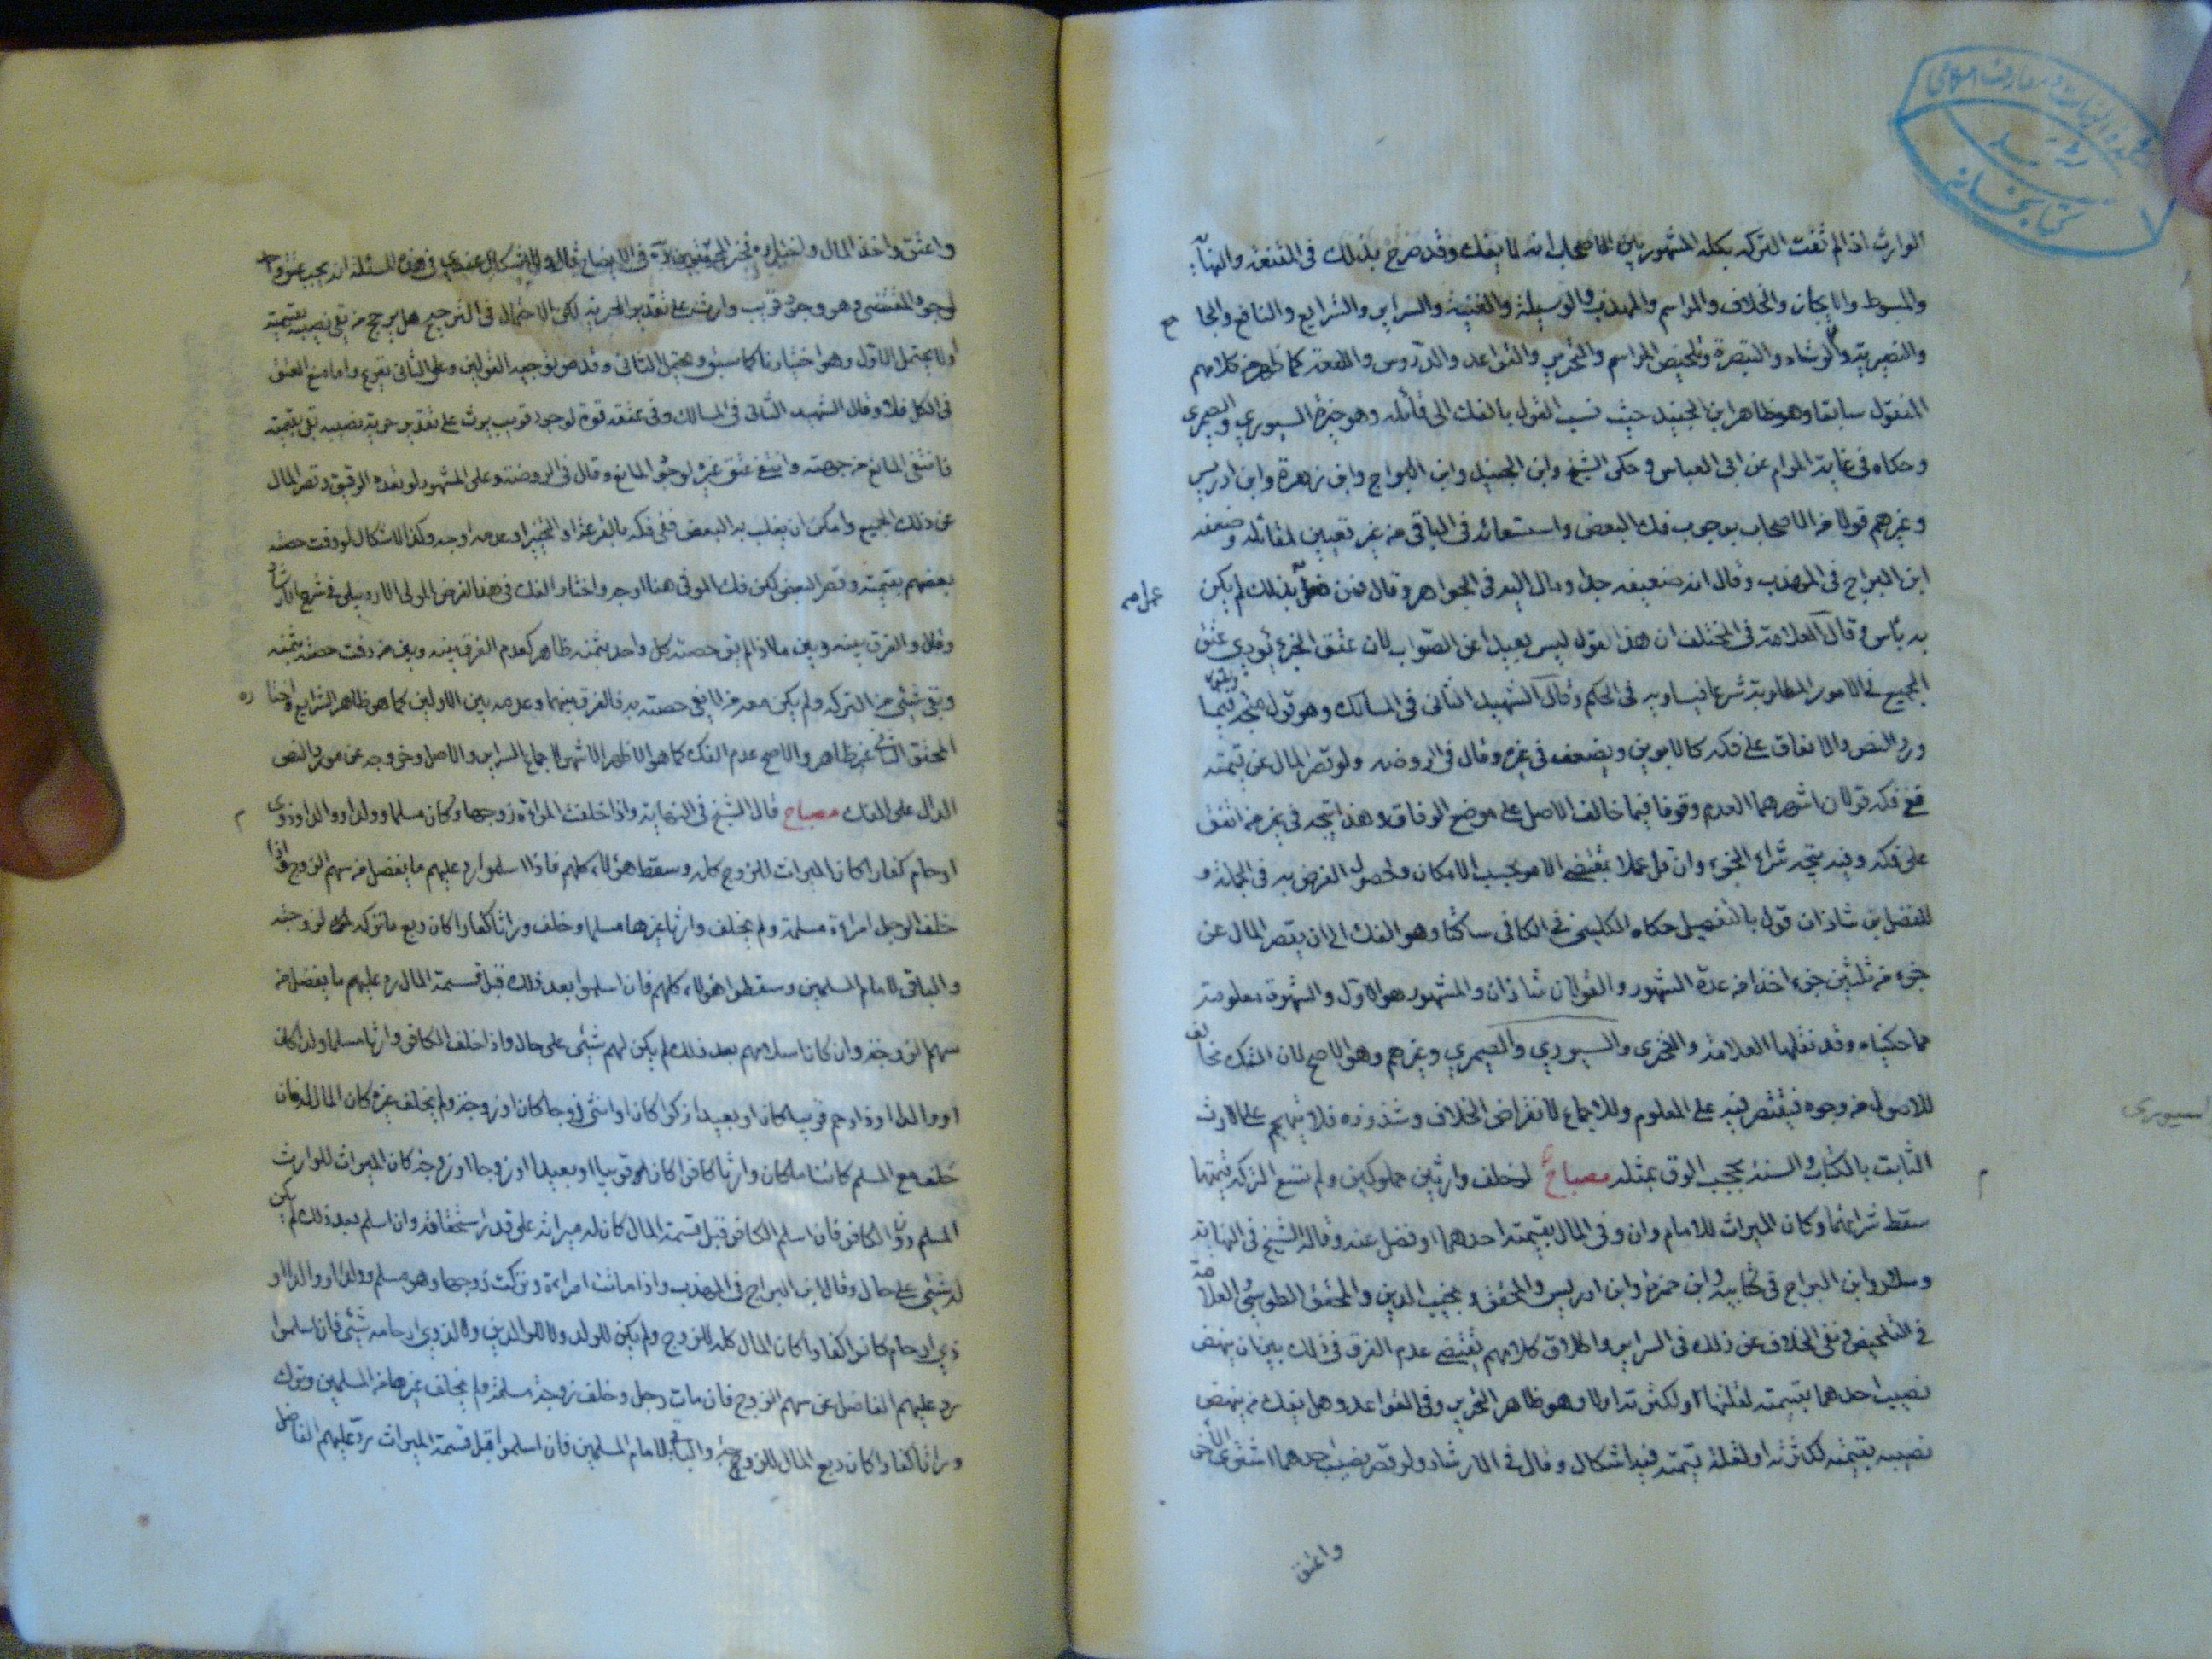 كتابخانه
الوارث اذا لم تف التركة بكله المشهور بين الاصحاب انه لا يفك وقد صرح بذلك في المقنعة والنهاية
والمبسوط والايجاز والخلاف والمراسم والمهذب والوسيلة والغنية والسراير والشرايع والنافع والجا مع
والتبصرة وتلخيص المراسم والتحرير والقواعد والدروس واللمعة كما ظهر من كلامهم
المنقول سابقا وهو ظاهر ابن الجنيد حيث نسب القول بالفك الى قائله وهو خيرة السيوري والصيمري
وحكاه في غاية المرام عن ابي العباس وحكى الشيخ وابن الجنيد وابن البراج وابن زهرة وابن ادريس
وغيرهم قولا من الاصحاب بوجوب فك البعض واستسعائه في الباقي من غير تعيين لقائله وضعفه
ابن البراج في المهذب وقال انه ضعيف جدا ومال اليه في الجواهر وقال فمن عمل بذلك لم يكن
به بأس وقال العلامة في المختلف ان هذا القول ليس بعيدا عن الصواب لان عتق الجزء يؤدي عتق
الجميع في الامور المطلوبة شرعا فيساويه في الحكم وقال الشهيد الثاني في المسالك وهو قول متجه فيما
ورد النص والاتفاق على فكه كالابوين ويضعف في غيره وقال في الروضة ولو قصر المال عن قيمته
ففي فكه قولان اشهرهما العدم وقوفا فيما خالف الاصل على موضع الوفاق وهذا يتجه في غير من اتفق
على فكه وفيه يتجه شراء الجزء وان قل عملا بمقتضى الامر بحسب الامكان ولحصول الغرض به في الجملة و
للفضل بن شاذان قول بالتفصيل حكاه الكليني في الكافي ساكتا وهو الفك الى ان يقصر المال عن
جزء من ثلثين جزء اخذا من عدة الشهور والقولان شاذان والمشهور هو الاول والشهرة معلومة
مما حكيناه وقد نقلها العلامة والفخري والسيوري والصيمري وغيرهم وهو الاصح لان الفك مخالف
للاصول من وجوه فيقتصر فيه على المعلوم وللاجماع لانقراض الخلاف وشذوذه فلا يتهجم على الارث
الثابت بالكتاب والسنة بحجب الرق بمثله مصباح لو خلف وارثين مملوكين ولم تتسع التركة قيمتها
سقط شراءهما وكان الميراث للامام وان وفى المال بقيمته احدهما او فضل عنه وقاله الشيخ في النهاية
وسلار وابن البراج في كتابيه وابن حمزة وابن ادريس والمحقق ونجيب الدين والمحقق الطوسي والعلامة
في التلخيص ونفى الخلاف عن ذلك في السراير واطلاق كلامهم يقتضي عدم الفرق في ذلك بين ان ينهض
نصيب احدهما بقيمته لقلتها او لكثرته او لا وهو ظاهر التحرير وفي القواعد وهل يفك من ينهض
نصيبه بقيمته لكثرته او لقلة قيمته فيه اشكال وقال في الارشاد ولو قصر نصيب احدهما اشترى الآخر
واعتق
سيوري
واعتق واخذ المال في الايضاح في هذه المسئلة انه يجب عتق واحد
لوجود المقتضى وهو وجود قريب وارث على تقدير الحرية لكن الاحتمال في الترجيح هل يرجح من يفي نصيبه بقيمته
او لا يحتمل الاول وهو اختيارنا كما سبق ويحتمل الثاني وقد مر توجيه القولين وعلى الثاني يقرع واما منع العتق
في الكل فلا وقال الشهيد الثاني في المسالك وفي عتقه قوة لوجود قريب يرث على تقدير حرية نصيبه يفي بقيمته
فانتفى المانع من جهته وانتفى عتق غيره لوجود المانع وقال في الروضة وعلى المشهور لو تعدد الرقيق وقصر المال
عن ذلك الجميع وامكن ان يفك به البعض ففي فكه بالقرعة او التخيير او عدمه اوجه وكذا الاشكال لو وفت حصة
بعضهم بقيمته وقصر البعض لكن فك الموفي هنا اوجه واختار الفك في هذا الفرض المولى الاردبيلي في شرح الارشاد
والفرق بينه وبين ما اذا لم يف حصة كل واحد بثمنه ظاهر كعدم الفرق بينه وبين من وفت حصته بثمنه
وبقي شيء من التركة ولم يكن معه من لا يفي حصته به فالفرق بينهما وعدمه بين الاولين كما هو ظاهر الشرايع واختاره
المحقق الثاني غير ظاهر والاصح عدم الفك كما هو الاظهر الاشهر لاجماع السراير والاصل وخروجه عن مورد النص
الدال على الفك مصباح قال الشيخ في النهاية واذا خلفت المراة زوجها وكان مسلما وولدا ووالدا وذوي
ارحام كفارا كان الميراث للزوج كله وسقط هؤلاء كلهم فاذا اسلموا رد عليهم ما يفضل من سهم الزوج واذا
خلف الرجل امراءة مسلمة ولم يخلف وارثا غيرها مسلما وخلف وراثا كفارا كان ربع ما تركه لزوجته
والباقي لامام المسلمين وسقطوا هؤلاء كلهم فان اسلموا بعد ذلك قبل قسمة المال رد عليهم ما يفضل من
سهم الزوجة وان كان اسلامهم بعد ذلك لم يكن لهم شيئ على حال واذا خلف الكافر وارثا مسلما ولدا كان
او والدا او ذا رحم قريبا كان او بعيدا ذكرا كان او انثى زوجا كان او زوجة ولم يخلف غيره كان المال له فان
خلف مع المسلم كائنا ما كان وارثا كافرا كان قريبا او بعيدا او زوجا او زوجة كان الميراث للوارث
المسلم دون الكافر فان اسلم الكافر قبل قسمة المال كان له ميراثه على قدر استحقاقه وان اسلم بعد ذلك لم يكن
له شيئ على حال وقال ابن البراج في المهذب واذا ماتت امراءة وتركت زوجها وهو مسلم وولدا او والدا او
ذوي ارحام كانوا كفارا كان المال كله للزوج ولم يكن للولد ولا للوالدين ولا لذوي ارحامه شيئ فان اسلموا
رد عليهم الفاضل عن سهم الزوج فان مات رجل وخلف زوجة مسلمة ولم يخلف غيرها من المسلمين وترك
وراثا كفارا كان ربع المال للزوجة والباقي لامام المسلمين فان اسلموا قبل قسمة الميراث رد عليهم الفاضل